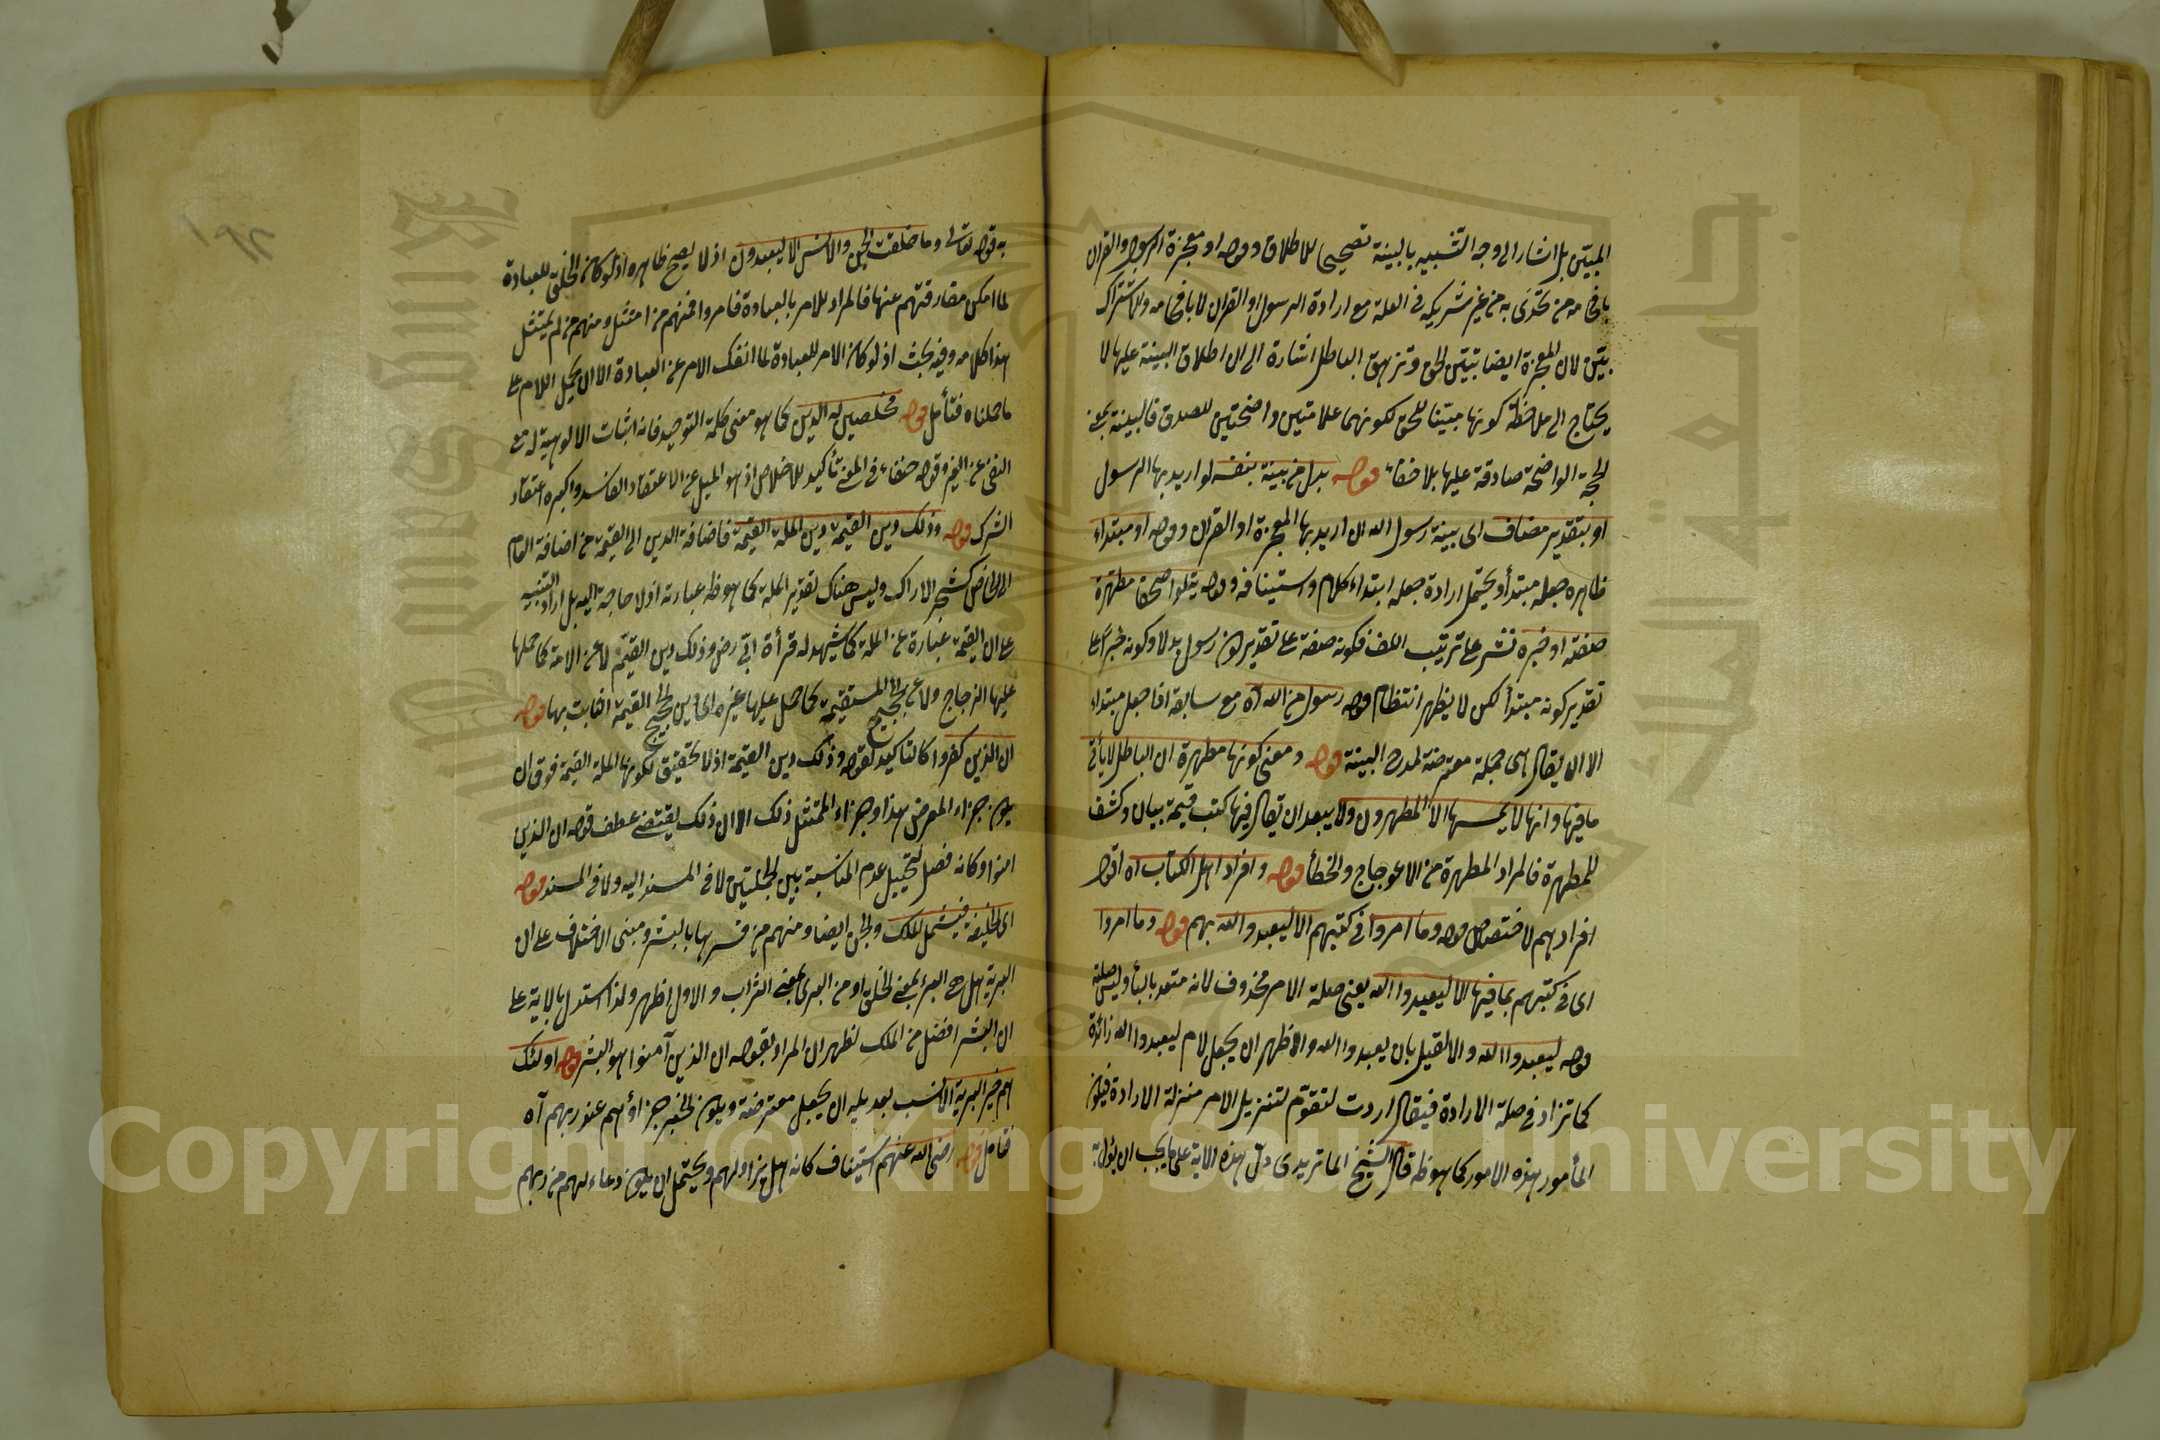 المبين بل اشار الى وجه التشبيه بالبينة تصحيحا للاطلاق وقوله او معجزة الرسول والقران
بافحامه من تحدى به من غير شريكه في العلة مع ارادة الرسول او القران لا بافحامه والاشتراك
بين لان المعجزة ايضا تبين الحق وتزهق الباطل اشارة الى ان اطلاق البينة عليها لا
يحتاج الى ملاحظة كونها مبينا للحق لكونهما علامتين واضحتين للصدق فالبينة بمعنى
الحجة الواضحة صادقة عليها بلا خفاء قوله بدل من بينة بنفسه لو اريد بها الرسول
او بتقدير مضاف اى بينة رسول الله ان اريد بها المعجزة او القران وقوله او مبتداء
ظاهره جعله مبتدأ ويحتمل ارادة جعله ابتداء كلام واستينافه وقوله يتلو صحفا مطهرة
صفته او خبره نشر على ترتيب اللف فكونه صفة على تقدير كون رسول بدلا وكونه خبرا على
تقدير كونه مبتدأ لكن لا يظهر انتظام قوله رسول من الله آه مع سابقه اذا جعل مبتداء
الا ان يقال هى جملة معترضة لمدح البينة قوله ومعنى كونها مطهرة ان الباطل لا يأتى
ما فيها وانها لا يمسها الا المطهرون ولا يبعد ان يقال فيها كتب قيمة بيان وكشف
للمطهرة فالمراد المطهرة من الاعوجاج والخطأ قوله وافراد اهل الكتاب آه اقول
افرادهم لاختصاص قوله وما امروا فى كتبهم الا ليعبدوا الله بهم قوله وما امروا
اى فى كتبهم بما فيها الا ليعبدوا الله يعنى صلة الامر محذوف لانه متعد بالباء وليس صلته
قوله ليعبدوا الله والا لقيل بان يعبدوا الله والاظهر ان يجعل لام ليعبدوا الله زائدة
كما تزاد فى صلة الارادة فيقال اردت لتقوم لتنزيل الامر منزلة الارادة فيكون
المأمور بهذه الامور كما هو ظ قال الشيخ الماتريدى دل هذه الاية على ما يجب ان يؤل
به قوله تعالى وما خلقت الجن والانس الا ليعبدون اذ لا يصح ظاهره اذ لو كان الخلق للعبادة
لما امكن مفارقتهم عنها فالمراد للامر بالعبادة فامروا فمنهم من امتثل ومنهم من لم يمتثل
هذا كلامه وفيه بحث اذ لو كان الامر للعبادة لما انفك الامر عن العبادة الا ان يحمل اللام على
ما حملناه فتأمل قوله مخلصين له الدين كما هو معنى كلمة التوحيد فانه اثبات الالوهية له مع
النفى عن الغير وقوله حنفاء فى المعنى تأكيد للاخلاص اذ هو الميل عن الاعتقاد الفاسد واكبره اعتقاد
الشرك قوله وذلك دين القيمة دين الملة القيمة فاضافة الدين الى القيمة من اضافة العام
الى الخاص كشجر الاراك وليس هناك تقدير الملة كما هو ظ عبارته اذ لا حاجة اليه بل اراد التنبيه
على ان القيمة عبارة عن الملة كما يشهد له قرأة ابى رض وذلك الدين القيمة لا عن الامة كما حملها
عليها الزجاج ولا عن الحجج المستقيمة كما حمل عليها غيره اى دين الحجج القيمة الثابت بها قوله
ان الذين كفروا كالتاكيد لقوله وذلك دين القيمة اذ لا تحقيق لكونها الملة القيمة فوق ان
يكون جزاء المعرض هذا وجزاء الممتثل ذلك الا ان ذلك يقتضى عطف قوله ان الذين
امنوا وكانه فصل لتخييل عدم المناسبة بين الجملتين لا فى المسند اليه ولا فى المسند قوله
اى الخليقة فيشمل الملك والجن ايضا ومنهم من فسرها بالبشر ومبنى الاختلاف على ان
البرية هل هى البرأ بمعنى الخلق او من البرى بمعنى التراب والاول اظهر ولذا استدل بالاية على
ان البشر افضل من الملك لظهور ان المراد بقوله ان الذين آمنوا هو البشر قوله اولئك
هم خير البرية الانسب بعديله ان يجعل معترضة ويكون الخبر جزاؤهم عند ربهم آه
فتامل قوله رضى الله عنهم استيناف كانه اهل يزاد لهم ويحتمل ان يكون دعاء لهم من ربهم